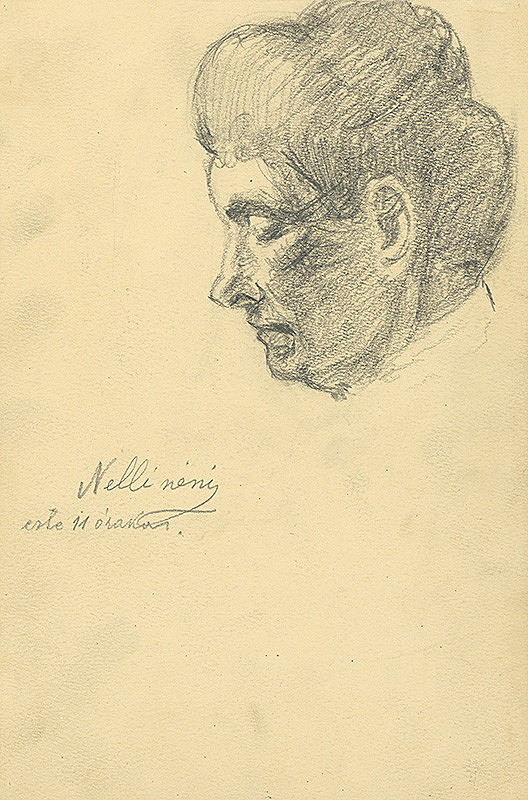 Nelli néni
este 11 órakor.